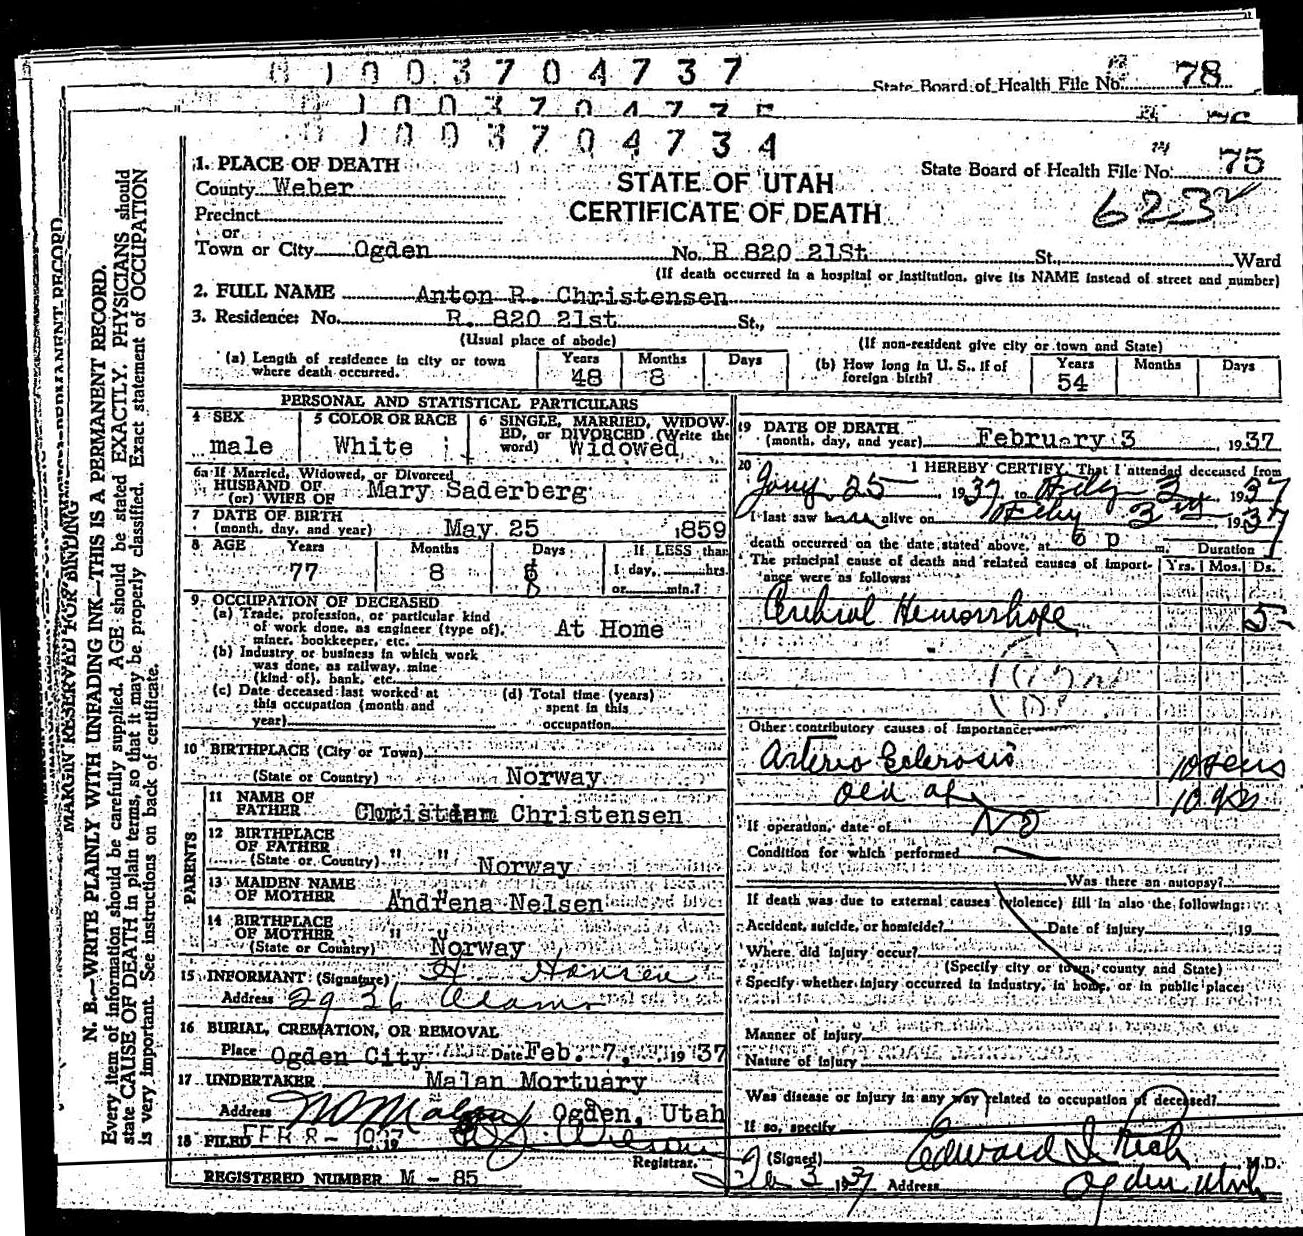 8 1 0 0 3 7 0 4 7 3 7
State Board of Health File No. 78
8 1 0 0 3 7 0 4 7 3 4
State Board of Health File No. 75
623
STATE OF UTAH
CERTIFICATE OF DEATH
1. PLACE OF DEATH
County Weber
Precinct
or
Town or City Ogden No. R 820 21St St., Ward
(If death occurred in a hospital or institution, give its NAME instead of street and number)
2. FULL NAME Anton R. Christensen
3. Residence: No. R. 820 21st St.,
(Usual place of abode) (If non-resident give city or town and State)
(a) Length of residence in city or town where death occurred. Years 48 Months 8 Days
(b) How long in U. S., if of foreign birth? Years 54 Months Days
MARGIN RESERVED FOR BINDING
N. B.—WRITE PLAINLY WITH UNFADING INK—THIS IS A PERMANENT RECORD.
Every item of information should be carefully supplied. AGE should be stated EXACTLY. PHYSICIANS should
state CAUSE OF DEATH in plain terms, so that it may be properly classified. Exact statement of OCCUPATION
is very important. See instructions on back of certificate.
PERSONAL AND STATISTICAL PARTICULARS
4 SEX male
5 COLOR OR RACE White
6 SINGLE, MARRIED, WIDOWED, or DIVORCED (Write the word) Widowed
6a If Married, Widowed, or Divorced
HUSBAND OF
(or) WIFE OF Mary Saderberg
7 DATE OF BIRTH
(month, day, and year) May 25 1859
8 AGE Years 77 Months 8 Days 8 If LESS than
1 day, hrs.
or min.?
9 OCCUPATION OF DECEASED
(a) Trade, profession, or particular kind
of work done, as engineer (type of),
miner, bookkeeper, etc. At Home
(b) Industry or business in which work
was done, as railway, mine
(kind of), bank, etc.
(c) Date deceased last worked at
this occupation (month and
year)
(d) Total time (years)
spent in this
occupation
10 BIRTHPLACE (City or Town)
(State or Country) Norway
PARENTS
11 NAME OF
FATHER Christian Christensen
12 BIRTHPLACE
OF FATHER
(State or Country) " " Norway
13 MAIDEN NAME
OF MOTHER Andrena Nelsen
14 BIRTHPLACE
OF MOTHER
(State or Country) " " Norway
15 INFORMANT (Signature) H Hansen
Address 2936 Adams
16 BURIAL, CREMATION, OR REMOVAL
Place Ogden City Date Feb. 7, 1937
17 UNDERTAKER Malan Mortuary
Address Ogden, Utah
18 FILED FEB 8 - 1937
Registrar.
REGISTERED NUMBER M - 85
19 DATE OF DEATH
(month, day, and year) February 3 1937
20 I HEREBY CERTIFY, That I attended deceased from
Jany 25 1937, to Feby 3rd, 1937
I last saw him alive on Feby 3rd 1937
death occurred on the date stated above, at 6 p m. Duration
The principal cause of death and related causes of importance were as follows: Yrs. Mos. Ds.
Cerebral Hemorrhage 5
Other contributory causes of importance:
Arterio Sclerosis 10 years
Old age 10 yrs
If operation, date of No
Condition for which performed
Was there an autopsy?
If death was due to external causes (violence) fill in also the following:
Accident, suicide, or homicide? Date of injury 19
Where did injury occur?
(Specify city or town, county and State)
Specify whether injury occurred in industry, in home, or in public place:
Manner of injury
Nature of injury
Was disease or injury in any way related to occupation of deceased?
If so, specify
(Signed) Edward I Rich M.D.
Feb 3 1937 Address Ogden Utah